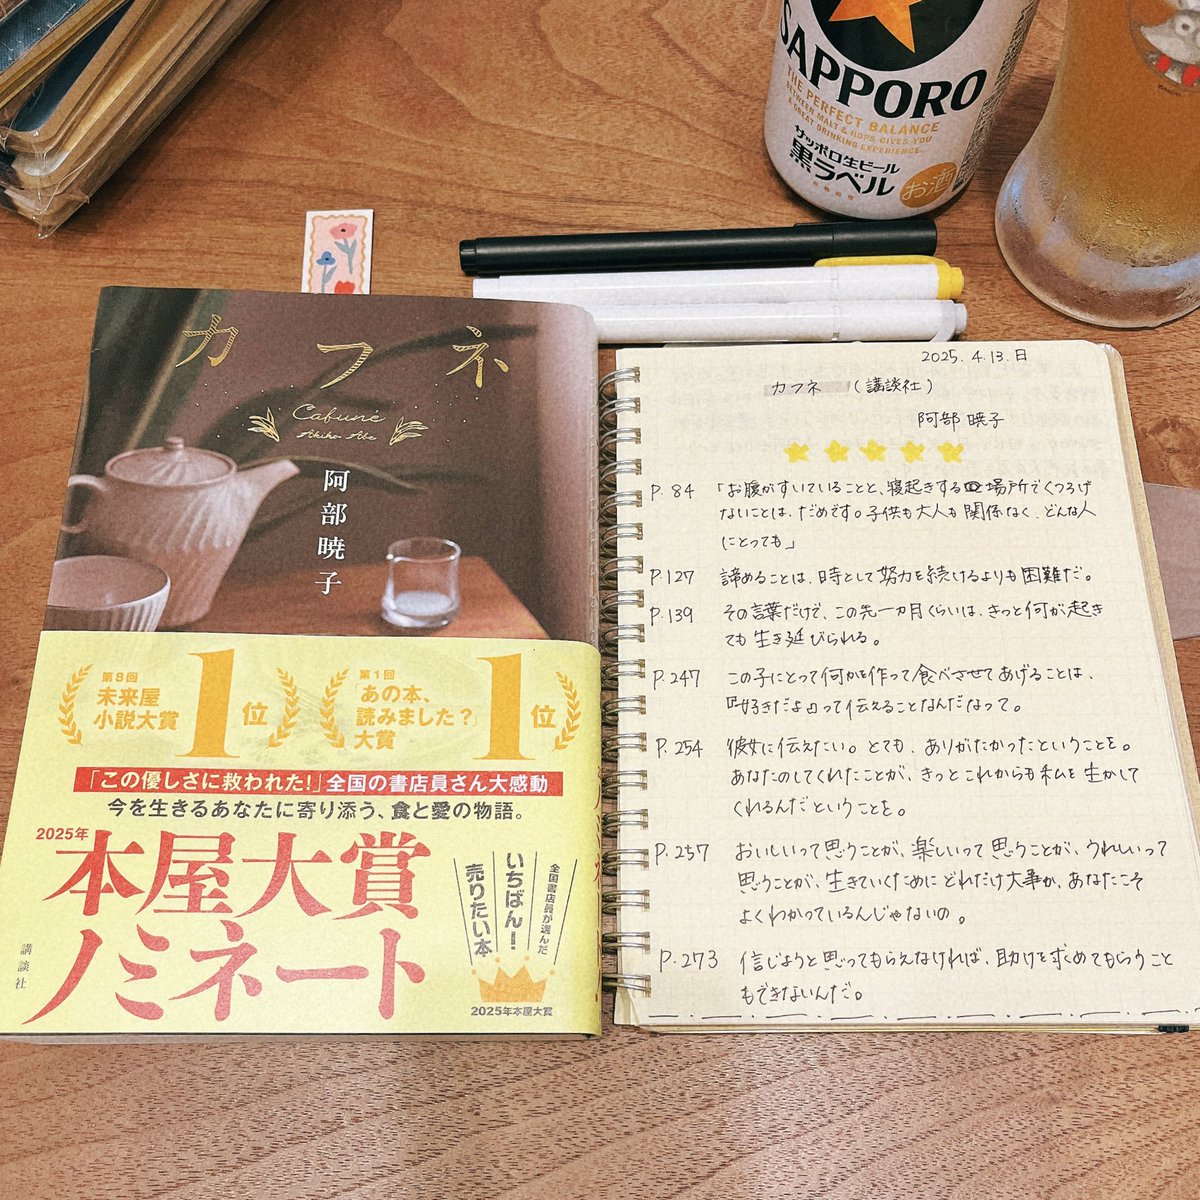 SAPPORO
THE PERFECT BALANCE
BETWEEN MALT & HOPS GIVES YOU
A GREAT DRINKING EXPERIENCE.
サッポロ生ビール
黒ラベル
お酒
カフネ
Cafuné
Akiko Abe
阿部暁子
第8回
未来屋
小説大賞
1位
第1回
「あの本、
読みました?」
大賞
1位
「この優しさに救われた!」全国の書店員さん大感動
今を生きるあなたに寄り添う、食と愛の物語。
2025年
本屋大賞
ノミネート
全国書店員が選んだ
いちばん!
売りたい本
2025年本屋大賞
講談社
2025.4.13.日
カフネ (講談社)
阿部 暁子
P.84 「お腹がすいていることと、寝起きする場所でくつろげ
ないことは、だめです。子供も大人も関係なく、どんな人
にとっても」
P.127 諦めることは、時として努力を続けるよりも困難だ。
P.139 その言葉だけで、この先一カ月くらいは、きっと何が起き
ても生き延びられる。
P.247 この子にとって何かを作って食べさせてあげることは、
『好きだよ』って伝えることなんだなって。
P.254 彼女に伝えたい。とても、ありがたかったということを。
あなたのしてくれたことが、きっとこれからも私を生かして
くれるんだということを。
P.257 おいしいって思うことが、楽しいって思うことが、うれしいって
思うことが、生きていくためにどれだけ大事か、あなたこそ
よくわかっているんじゃないの。
P.273 信じようと思ってもらえなければ、助けを求めてもらうこと
もできないんだ。